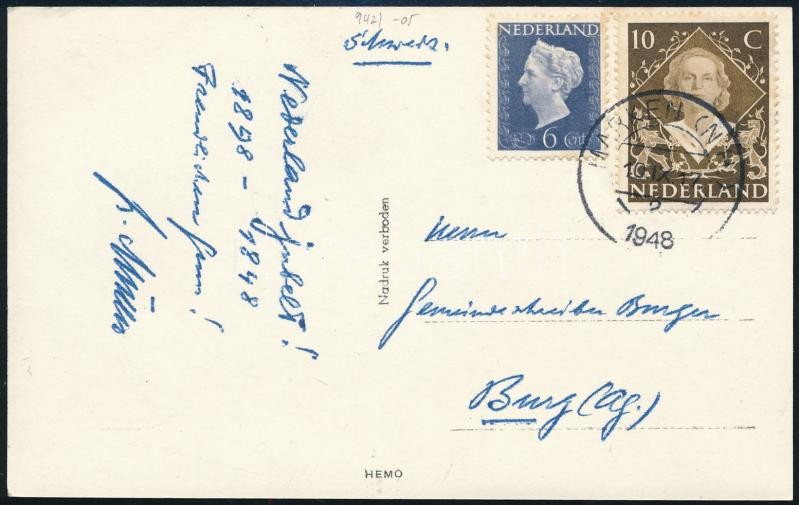 9421 -05
Schweiz.
NEDERLAND
6 Cent
10 C
NEDERLAND
MARKEN (N
1948
Nederland jubelt!
1898 - 1948
Freundlichen Gruss!
Nadruk verboden
Herrn
Gemeindeschreiber Burger
Burg (Ag.)
HEMO